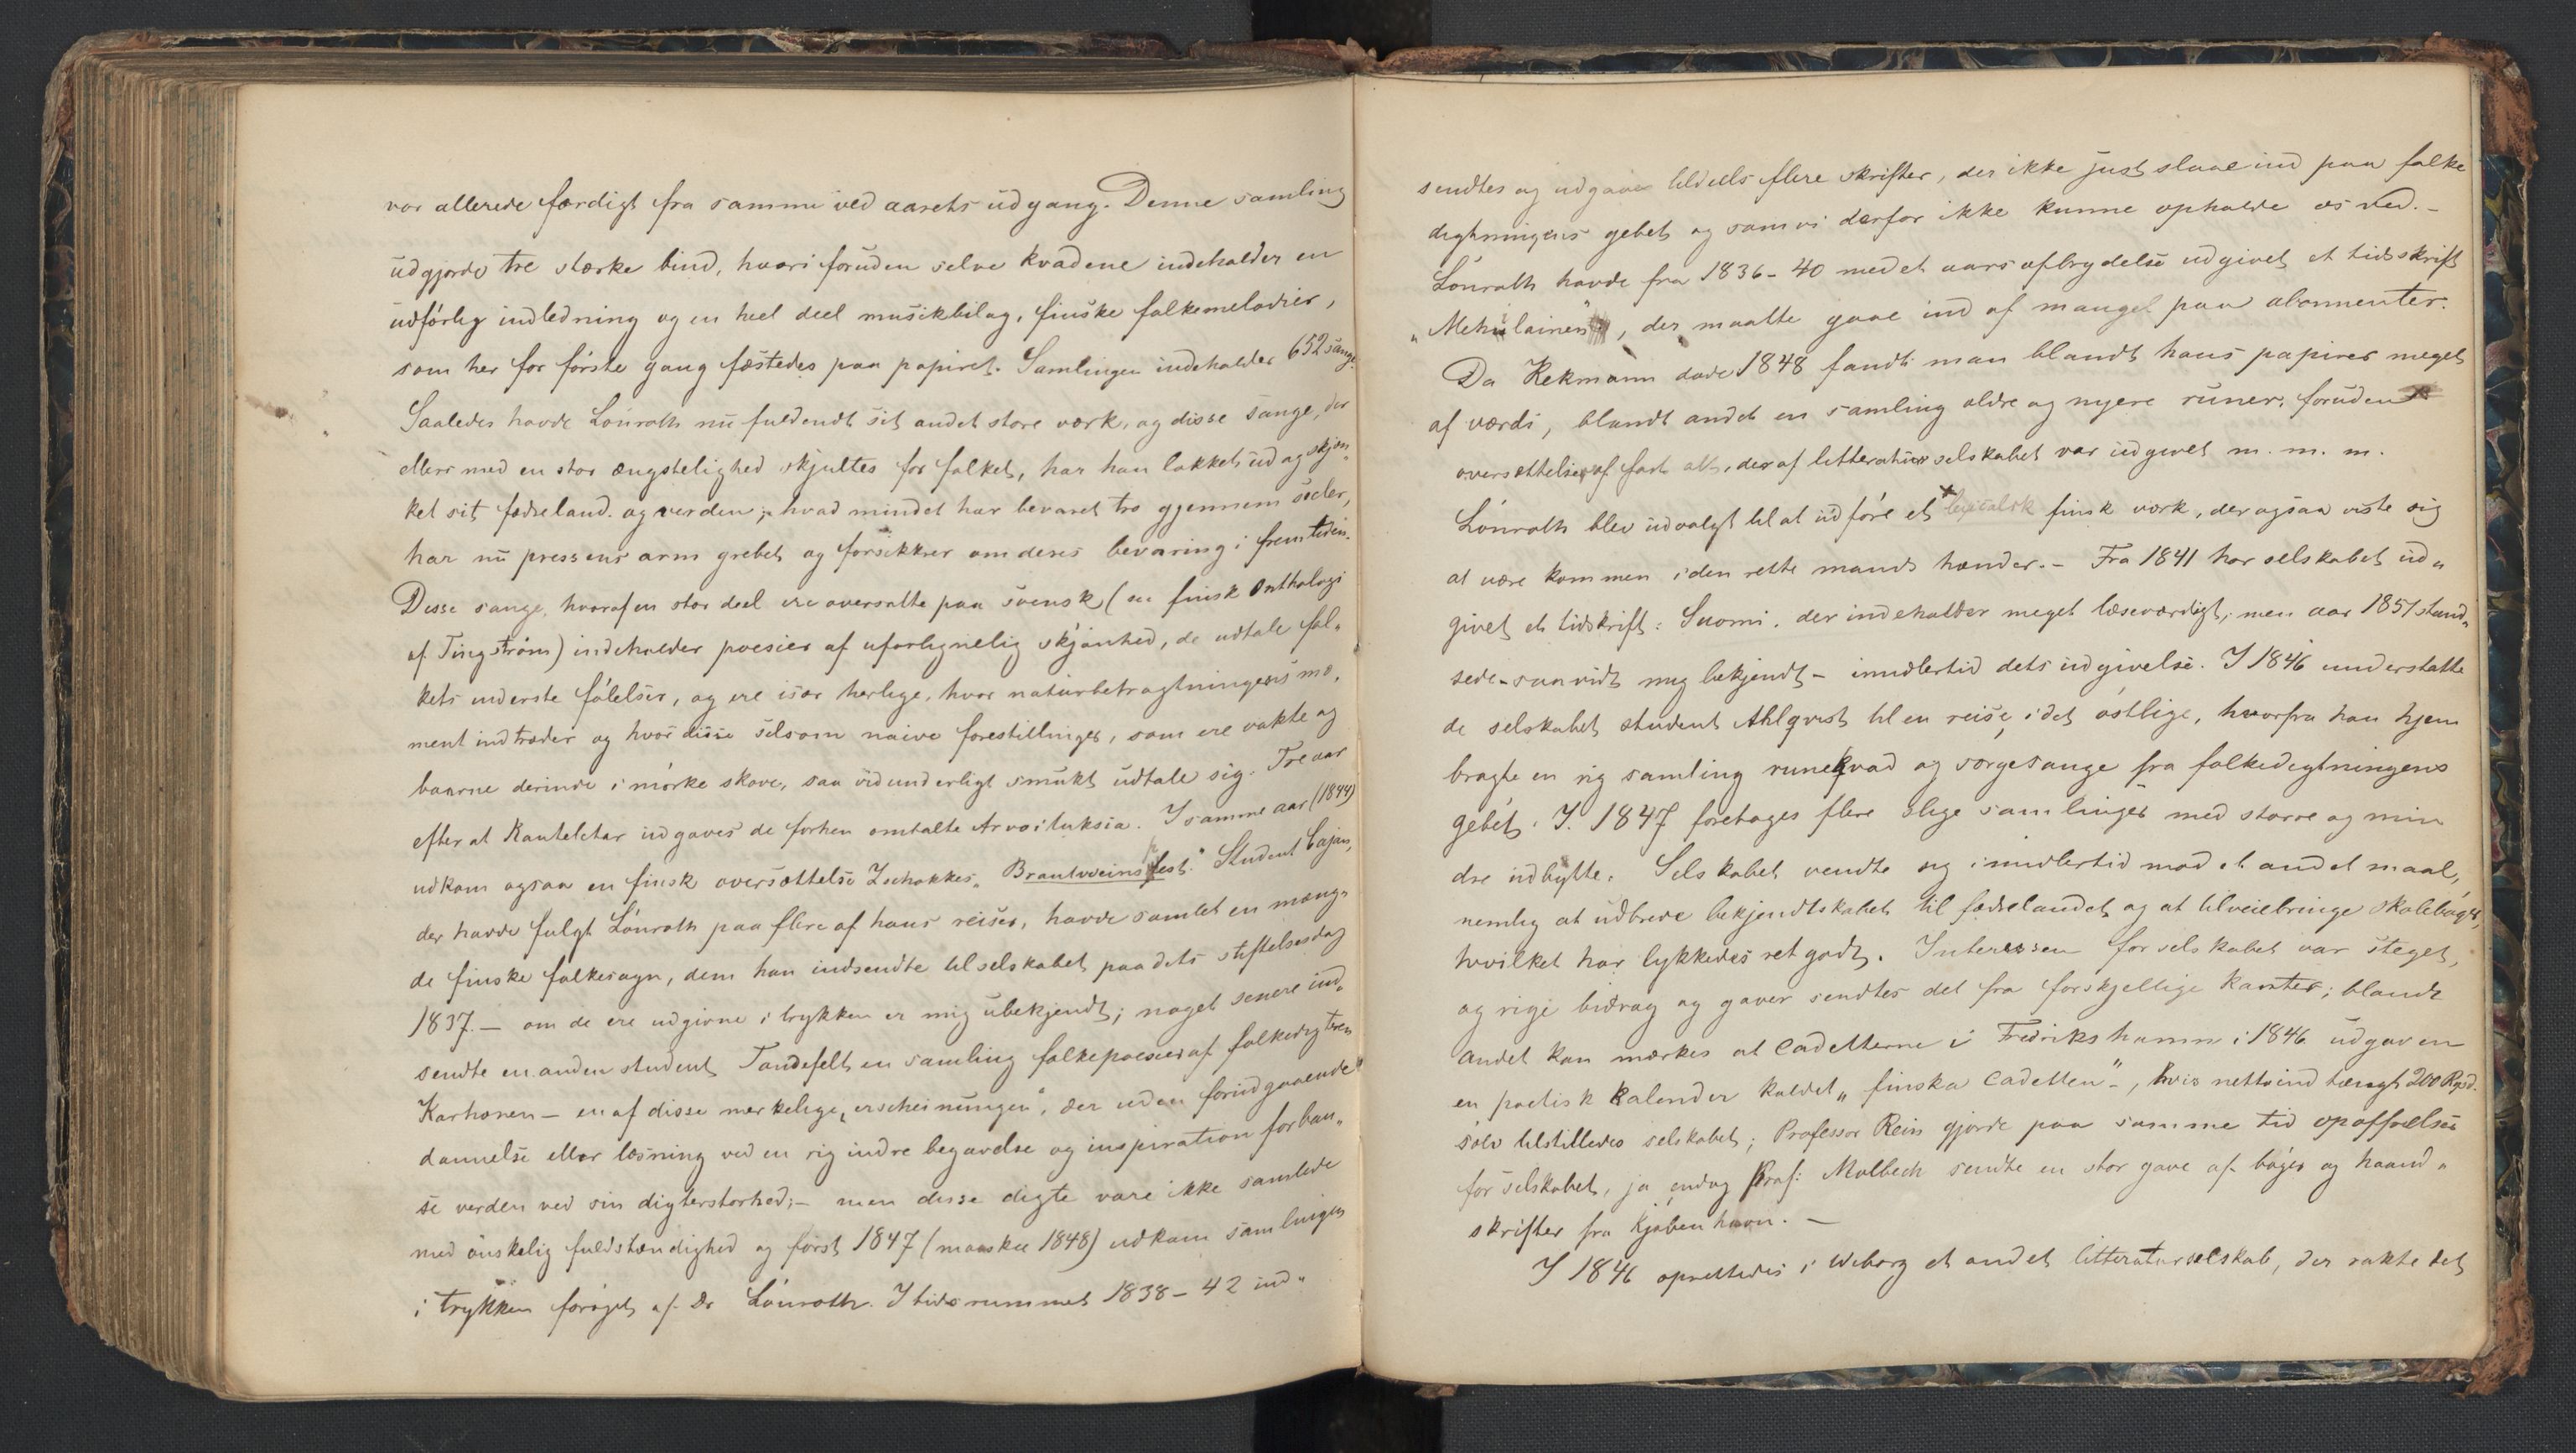 var allerede færdigt fra samme ved aarets udgang. Denne samling
udgjorde tre stærke bind, hvori foruden selve kvadene indeholder en
udførlig indledning og en heel deel musikbilag, finske folkemelodier,
som her for første gang fæstedes paa papiret. Samlingen indeholder 652 sange.
Saaledes havde Lönroth nu fuldendt sit andet store værk, og disse sange, der
ellers med en stor ængstelighed skjultes for folket, har han lokket ud og skjæn„
ket sit fædreland og verden; hvad mindet har bevaret tro gjennem secler,
har nu pressens arm grebet og forsikkrer om deres bevaring i fremtiden.
Disse sange, hvoraf en stor deel ere oversatte paa svensk (en finsk Anthologi
af Tingström) indeholder poesier af uforlignelig skjønhed, de udtale fol„
kets inderste følelser, og ere især herlige, hvor naturbetragtningens mo„
ment indtræder og hvor disse selsom naive forestillinger, som ere vakte og
baarne derinde i mørke skove, saa vidunderligt smukt udtale sig. Tre aar
efter at Kanteletar udgaves de forhen omtalte Arvoituksia. I samme aar (1844)
udkom ogsaa en finsk oversættelse Zschokkes „Brantweinspest." Student Cajan,
der havde fulgt Lönroth paa flere af hans reiser, havde samlet en mæng„
de finske folkesagn, dem han indsendte til selskabet paa dets stiftelsesdag
1837. — om de ere udgivne i trykken er mig ubekjendt; noget senere ind„
sendte en anden student Tandefelt en samling folkepoesier af folkedigteren
Korhonen — en af disse merkelige „erscheinungen", der uden forudgaaende
dannelse eller læsning ved en rig indre begavelse og inspiration forbau„
se verden ved sin digterstorhed; — men disse digte vare ikke samlede
med ønskelig fuldstændighed og først 1847 (maaskee 1848) udkom samlingen
i trykken forøget af Dr Lönroth. I tidsrummet 1838 – 42 ind„
sendtes og udgaves tildeels flere skrifter, der ikke just slaae ind paa folke
digtningens gebet og som vi derfor ikke kunne opholde os ved. –
Lönroth havde fra 1836 – 40 med et aars afbrydelse udgivet et tidsskrift
„Mehiläinen", der maatte gaae ind af mangel paa abonnenter.
Da Kekmann døde 1848 fandt man blandt hans papirer meget
af værdi, blandt andet en samling ældre og nyere runer, foruden
oversættelser af fast alt, der af litteraturselskabet var udgivet m. m. m.
Lönroth blev udvalgt til at udføre et lexicalsk finsk værk, der ogsaa viste sig
at være kommen i den rette mands hænder. – Fra 1841 har selskabet ud„
givet et tidskrift: Suomi, der indeholder meget læseværdigt, men aar 1851 stand„
sede – saavidt mig bekjendt – imidlertid dets udgivelse. I 1846 understøtte
de selskabet student Ahlqvist til en reise i det østlige, hvorfra han hjem
bragte en rig samling runekvad og sørgesange fra folkedigtningens
gebet. I 1847 foretoges flere slige samlinger med større og min
dre udbytte. Selskabet vendte sig imidlertid mod et andet maal,
nemlig at udbrede bekjendtskabet til fædrelandet og at tilveiebringe skolebøger,
hvilket har lykkedes ret godt. Interessen for selskabet var steget,
og rige bidrag og gaver sendtes det fra forskjellige kanter; blandt
andet kan mærkes at Cadetterne i Fredrikshamn i 1846 udgav en
en poetisk kalender kaldet „finska Cadetten" –, hvis nettoindtægt 200 Rpd.
sølv tilstilledes selskabet; Professor Rein gjorde paa samme tid opoffrelser
for selskabet, ja endog Prof: Molbech sendte en stor gave af bøger og haand„
skrifter fra Kjøbenhavn. —
I 1846 oprettedes i Wiborg et andet litteraturselskab, der rakte det